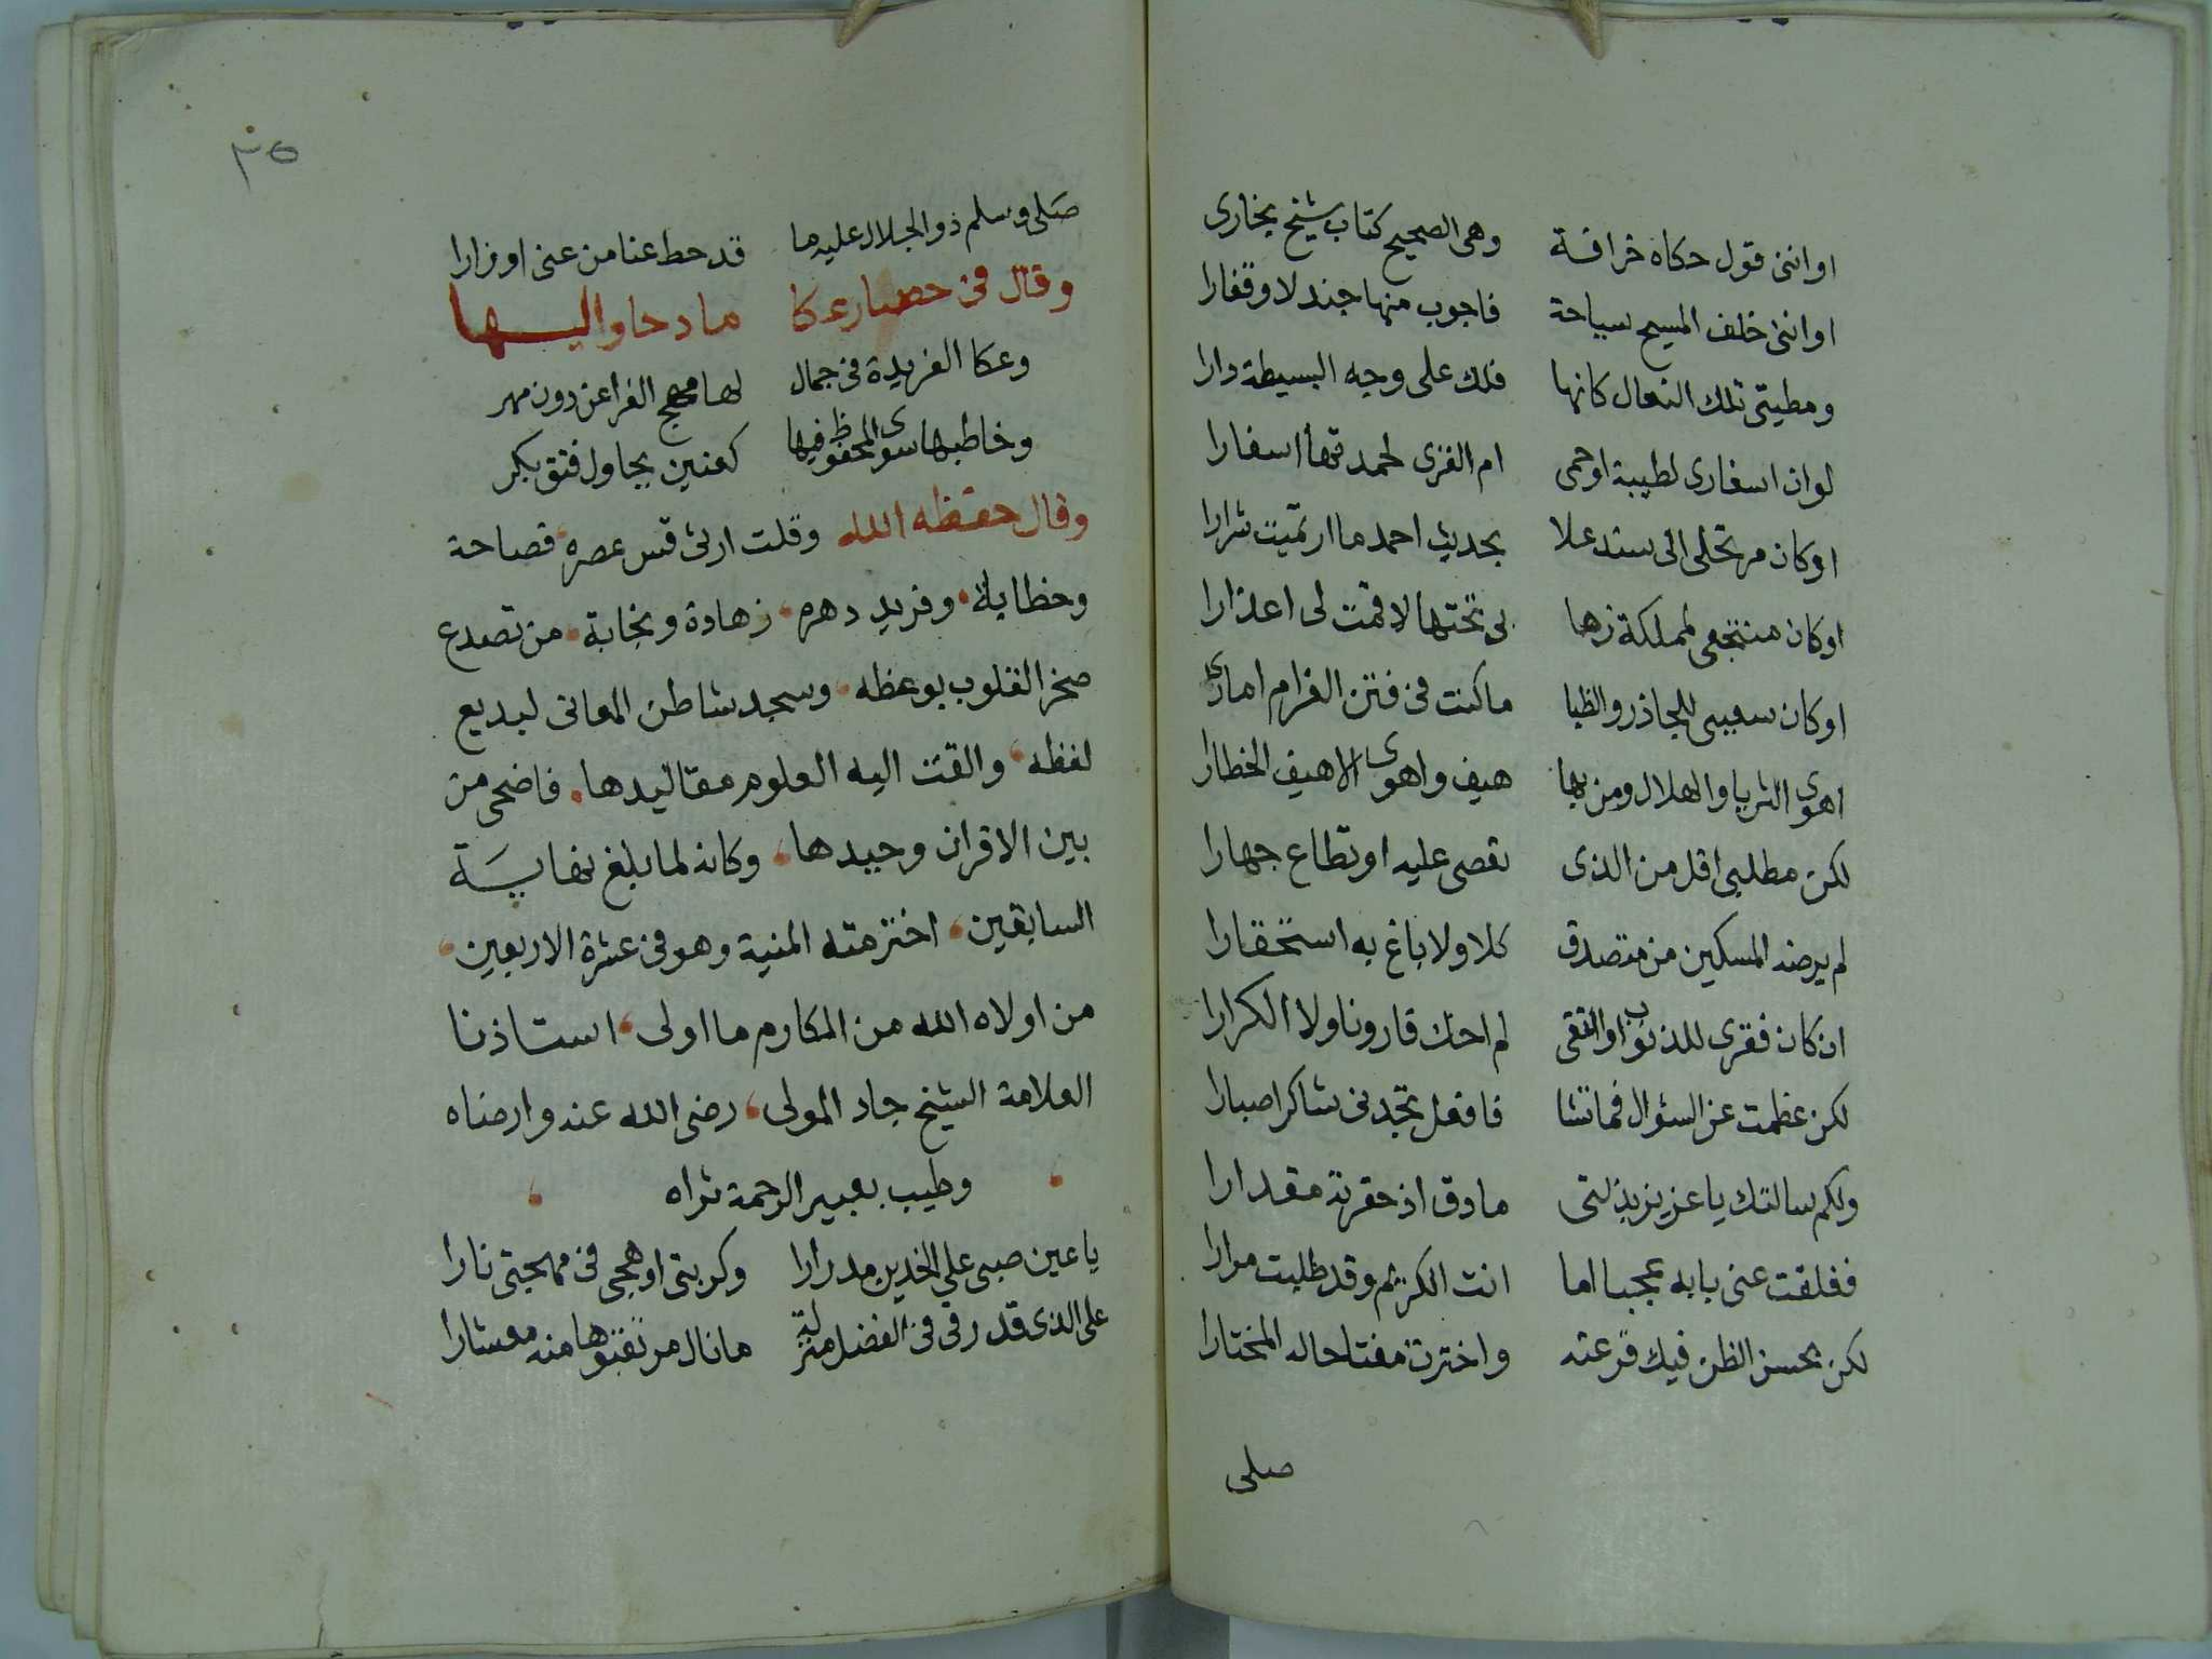 او انني قول حكاه خرافة وهى الصحيح كتاب شيخ بخارى
او انني خلف المسيح سياحة فاجوب منها جندلا وقفارا
ومطيتى تلك النعال كانها فلك على وجه البسيطة دارا
لو ان اسفارى لطيبة او حمى ام القرى لحمدتها اسفارا
او كان مرتحلى الى سند علا بحديث احمد ما ارتميت شرارا
او كان منتجعى لمملكة زها بى تختها لاقمت لى اعذارا
او كان سعيى للجاذر والظبا ما كنت فى فتن الغرام امارى
اهوى الثريا والهلال ومن بها هيف واهوى الاهيف الخطارا
لكن مطلبى اقل من الذى تعصى عليه او تطاع جهارا
لم يرضه المسكين من متصدق كلا ولا باغ به استحقارا
ان كان فقرى للذنوب او التقى لم احك قارونا ولا الكرارا
لكن عظمت عن السؤال فما تشا فافعل تجدنى شاكرا صبارا
ولكم سالتك يا عزيز بذلتى ما دق اذ حقرته مقدارا
فغلقت عنى بابه عجبا اما انت الكريم وقد طلبت مرارا
لكن بحسن الظن فيك قرعته واخترت مفتاحا له المختارا
صلى
٣٥
صلى وسلم ذو الجلال عليه ما قد حط عنا من عنى اوزارا
وقال فى حصار عكا مادحا واليها
وعكا الفريدة فى جمال لها مهج الفراعن دون مهر
وخاطبها سوى المحفوظ فيها كعنين يحاول فتق بكر
وقال حفظه الله وقلت ارثى قس عصره فصاحة
وخطابة وفريد دهره زهادة ونجابة من تصدع
صخر القلوب بوعظه وسجد شاطن المعانى لبديع
لفظه والقت اليه العلوم مقاليدها فاضحى من
بين الاقران وحيدها وكانه لما بلغ نهاية
السابقين اخترمته المنية وهو فى عشرة الاربعين
من اولاه الله من المكارم ما اولى استاذنا
العلامة الشيخ جاد المولى رضى الله عنه وارضاه
وطيب بعبير الرحمة ثراه
يا عين صبى على الخدين مدرارا وكربتى اوهجى فى مهجتى نارا
على الذى قد رقى فى الفضل منزلة ما نال مرتقبوها منه معشارا